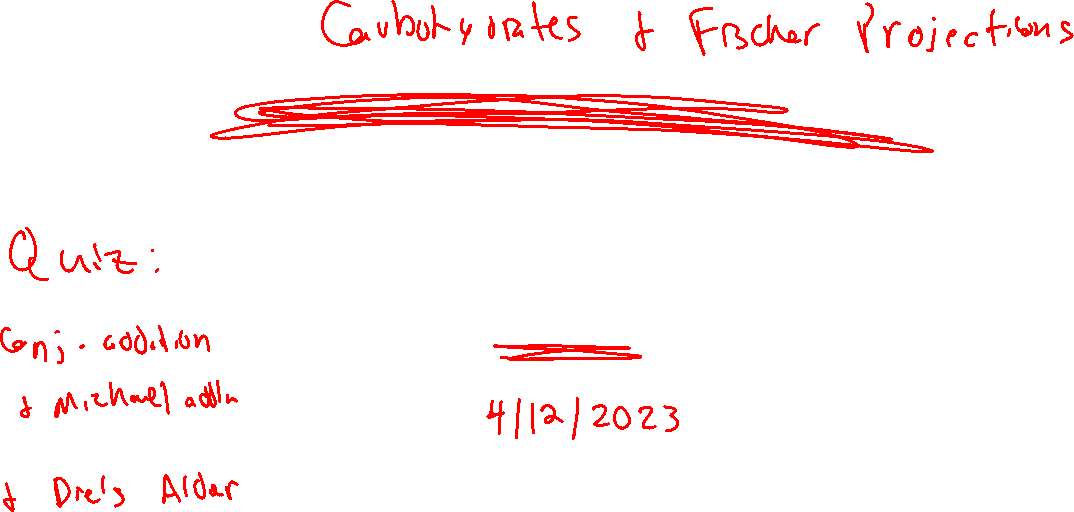 Carbohydrates & Fischer Projections
Quiz:
Conj. addition
& Michael add'n
& Diels Alder
4/12/2023